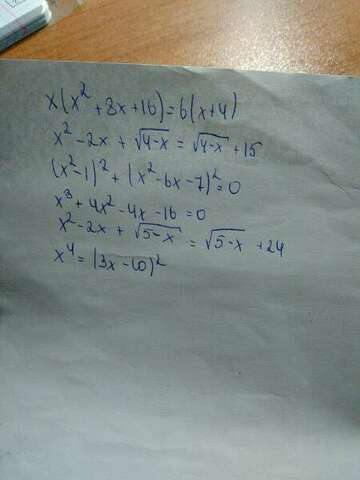 x(x² + 8x + 16) = 6(x+4)
x² - 2x + √4-x = √4-x + 15
(x² - 1)² + (x² - 6x - 7)² = 0
x³ + 4x² - 4x - 16 = 0
x² - 2x + √5-x = √5-x + 24
x⁴ = (3x - 10)²